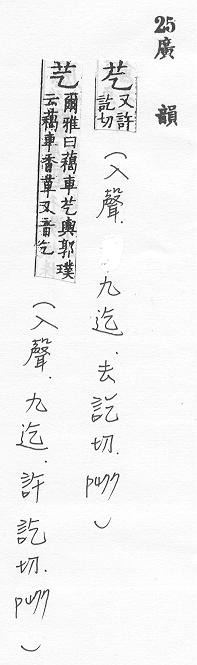 25 廣韻
芞 又許訖切 (入聲.九迄.去訖切.p477)
芞 爾雅曰藒車芞輿郭璞云藒車香草又音乞 (入聲.九迄.許訖切.p477)